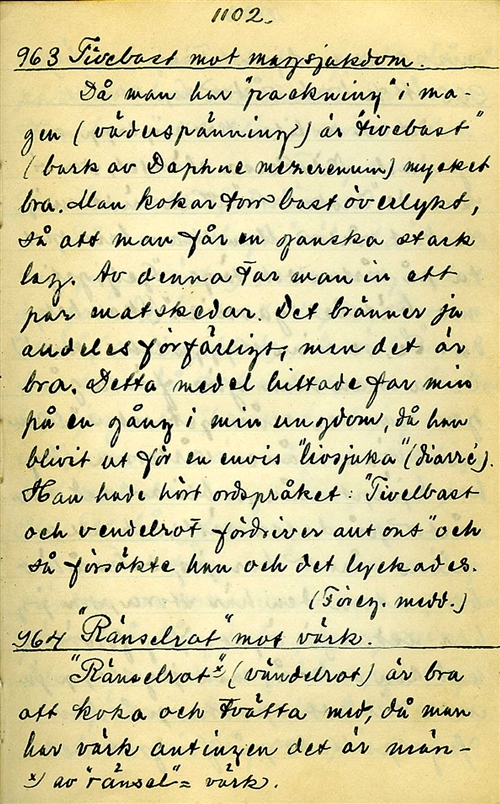 1102.
963 Tivebast mot magsjukdom.
Då man har "packning" i ma-
gen (väderspänning) är "tivebast"
(bark av Daphne mezereum) mycket
bra. Man kokar torr bast överlykt,
så att man får en ganska stark
lag. Av denna tar man in ett
par matskedar. Det bränner ju
audeles förfärligt, men det är
bra. Detta medel hittade far min
på en gång i min ungdom, då han
blivit ut för en envis "livsjuka" (diarré).
Han hade hört ordspråket: "Tivelbast
och vendelrot fördriver aut ont" och
så försökte han och det lyckades.
(Föreg. medd.)
964 "Ränselrot" mot värk.
"Ränselrot" x) (vändelrot) är bra
att koka och tvätta med, då man
har värk antingen det är män-
x) av "ränsel" = värk.